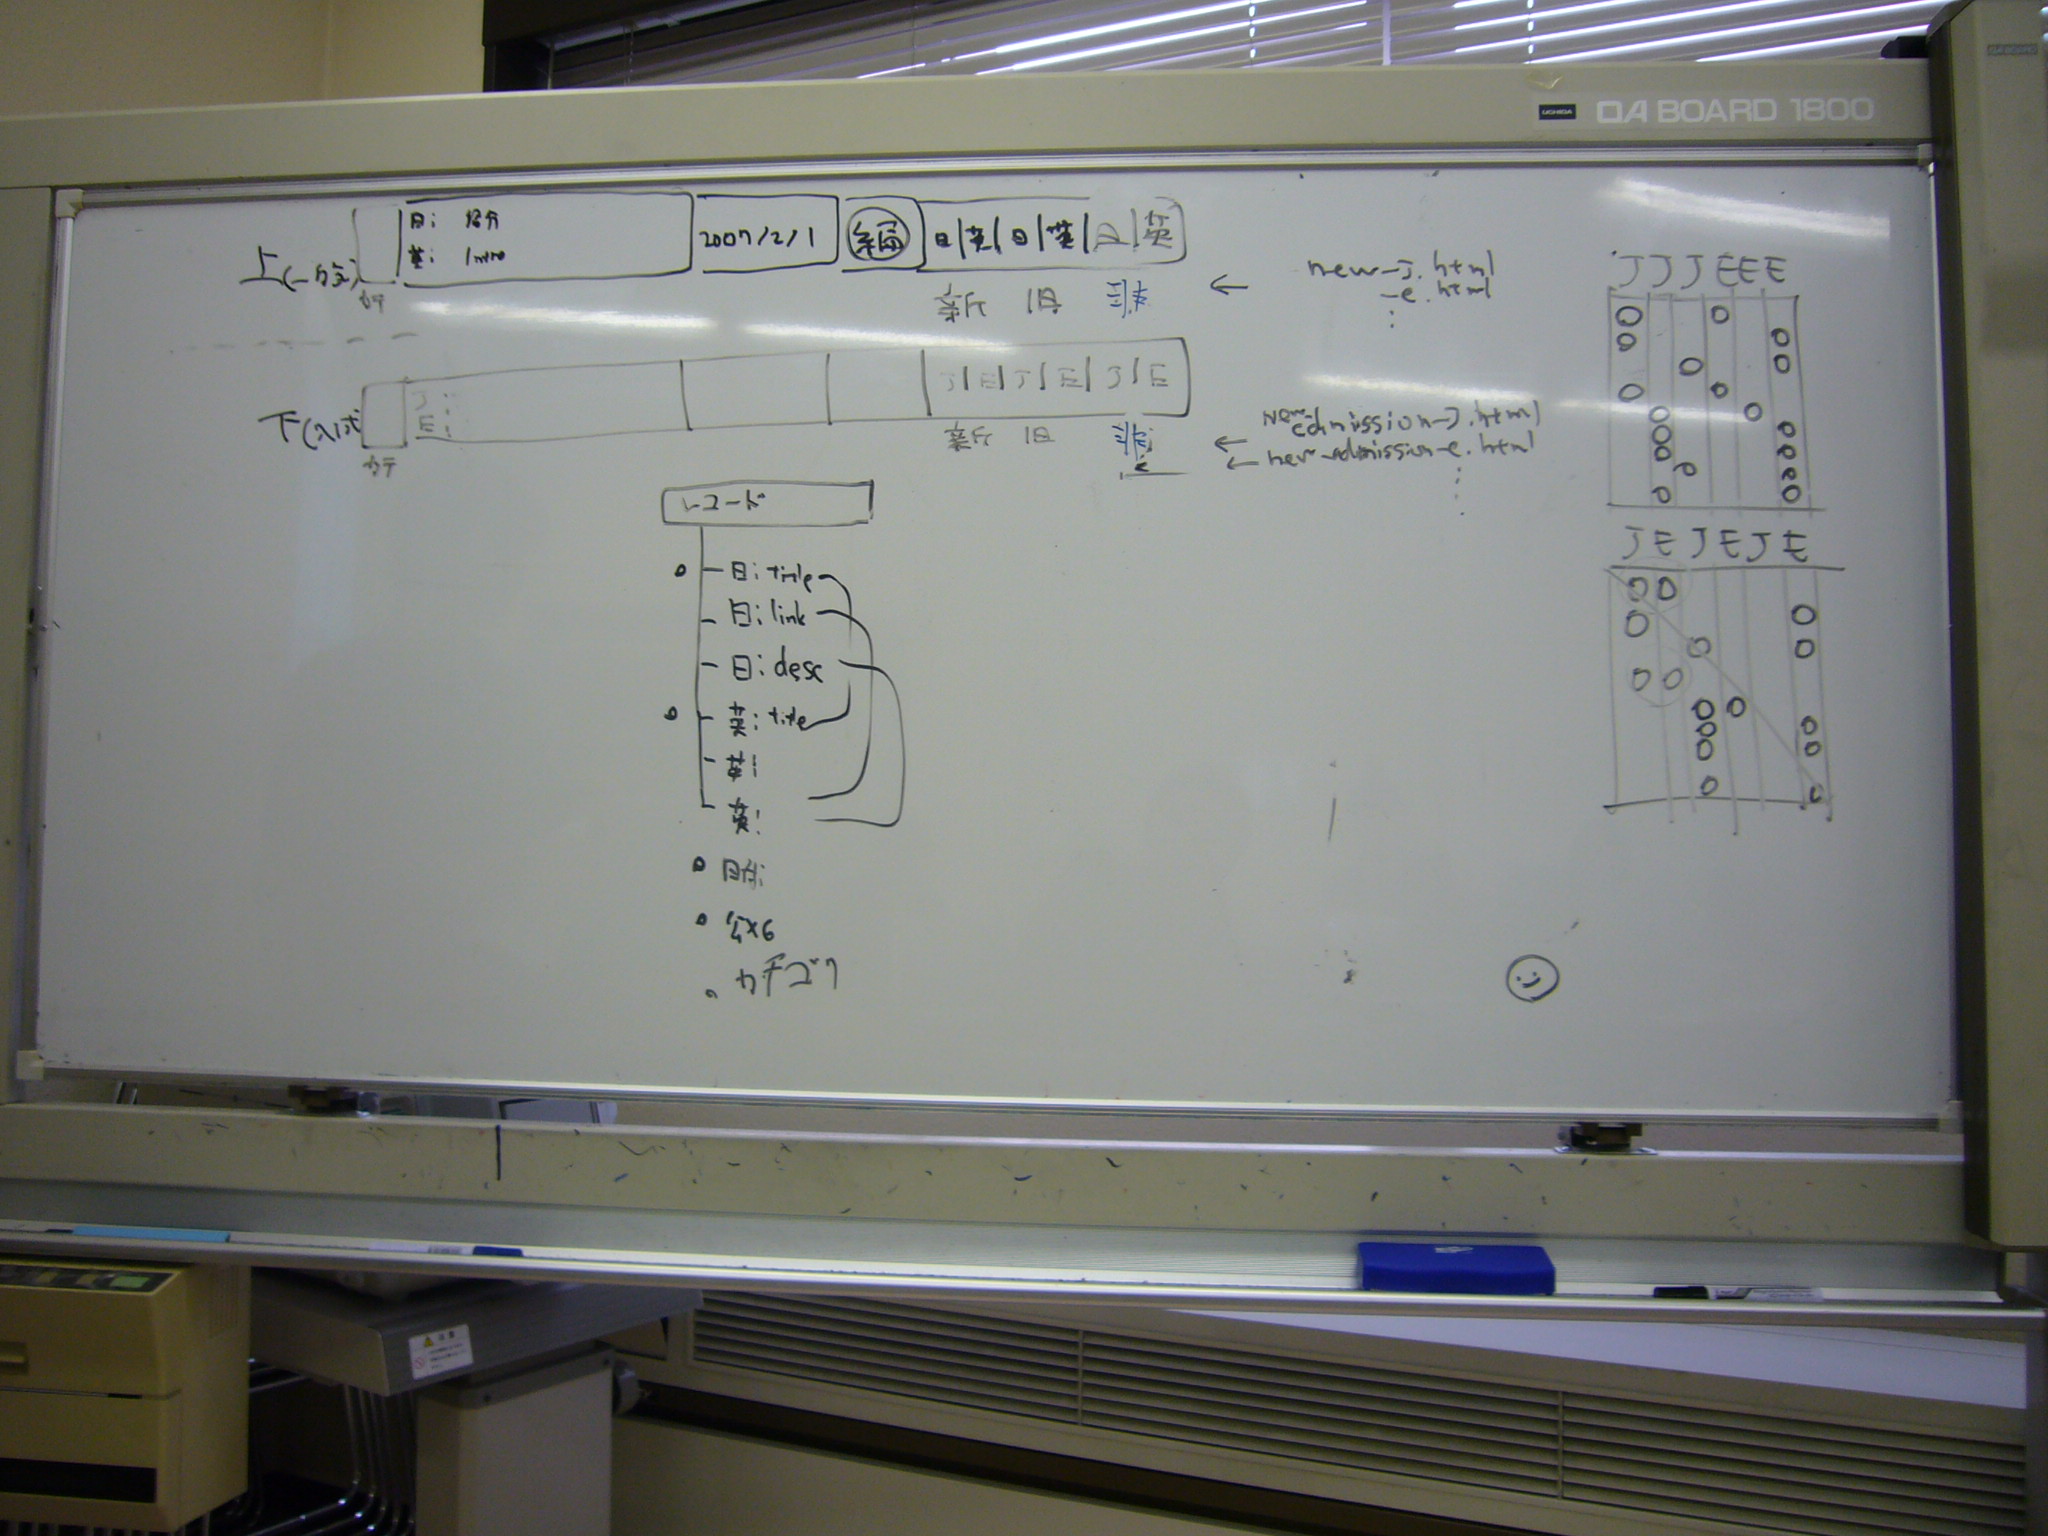 UCHIDA OA BOARD 1800
日:
英: Intro
2007/2/1
編
日|英|日|英|日|英
上(一般)
カテ
新 旧 非
← new-J.html
-e.html
J|E|J|E|J|E
J:
E:
下(入試)
カテ
新 旧 非
← New admission-J.html
← new-admission-e.html
レコード
日: title
日: link
日: desc
英: title
英:
英:
日付:
カテゴリ
J J J E E E
J E J E J E
注意